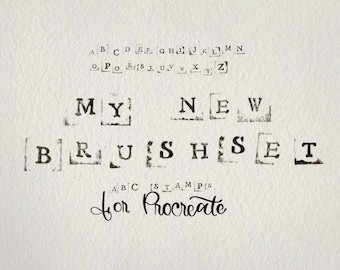 ABCDEFGHIJKLMN
OPQRSTUVWXYZ
MY NEW
BRUSHSET
ABC STAMPS
for Procreate